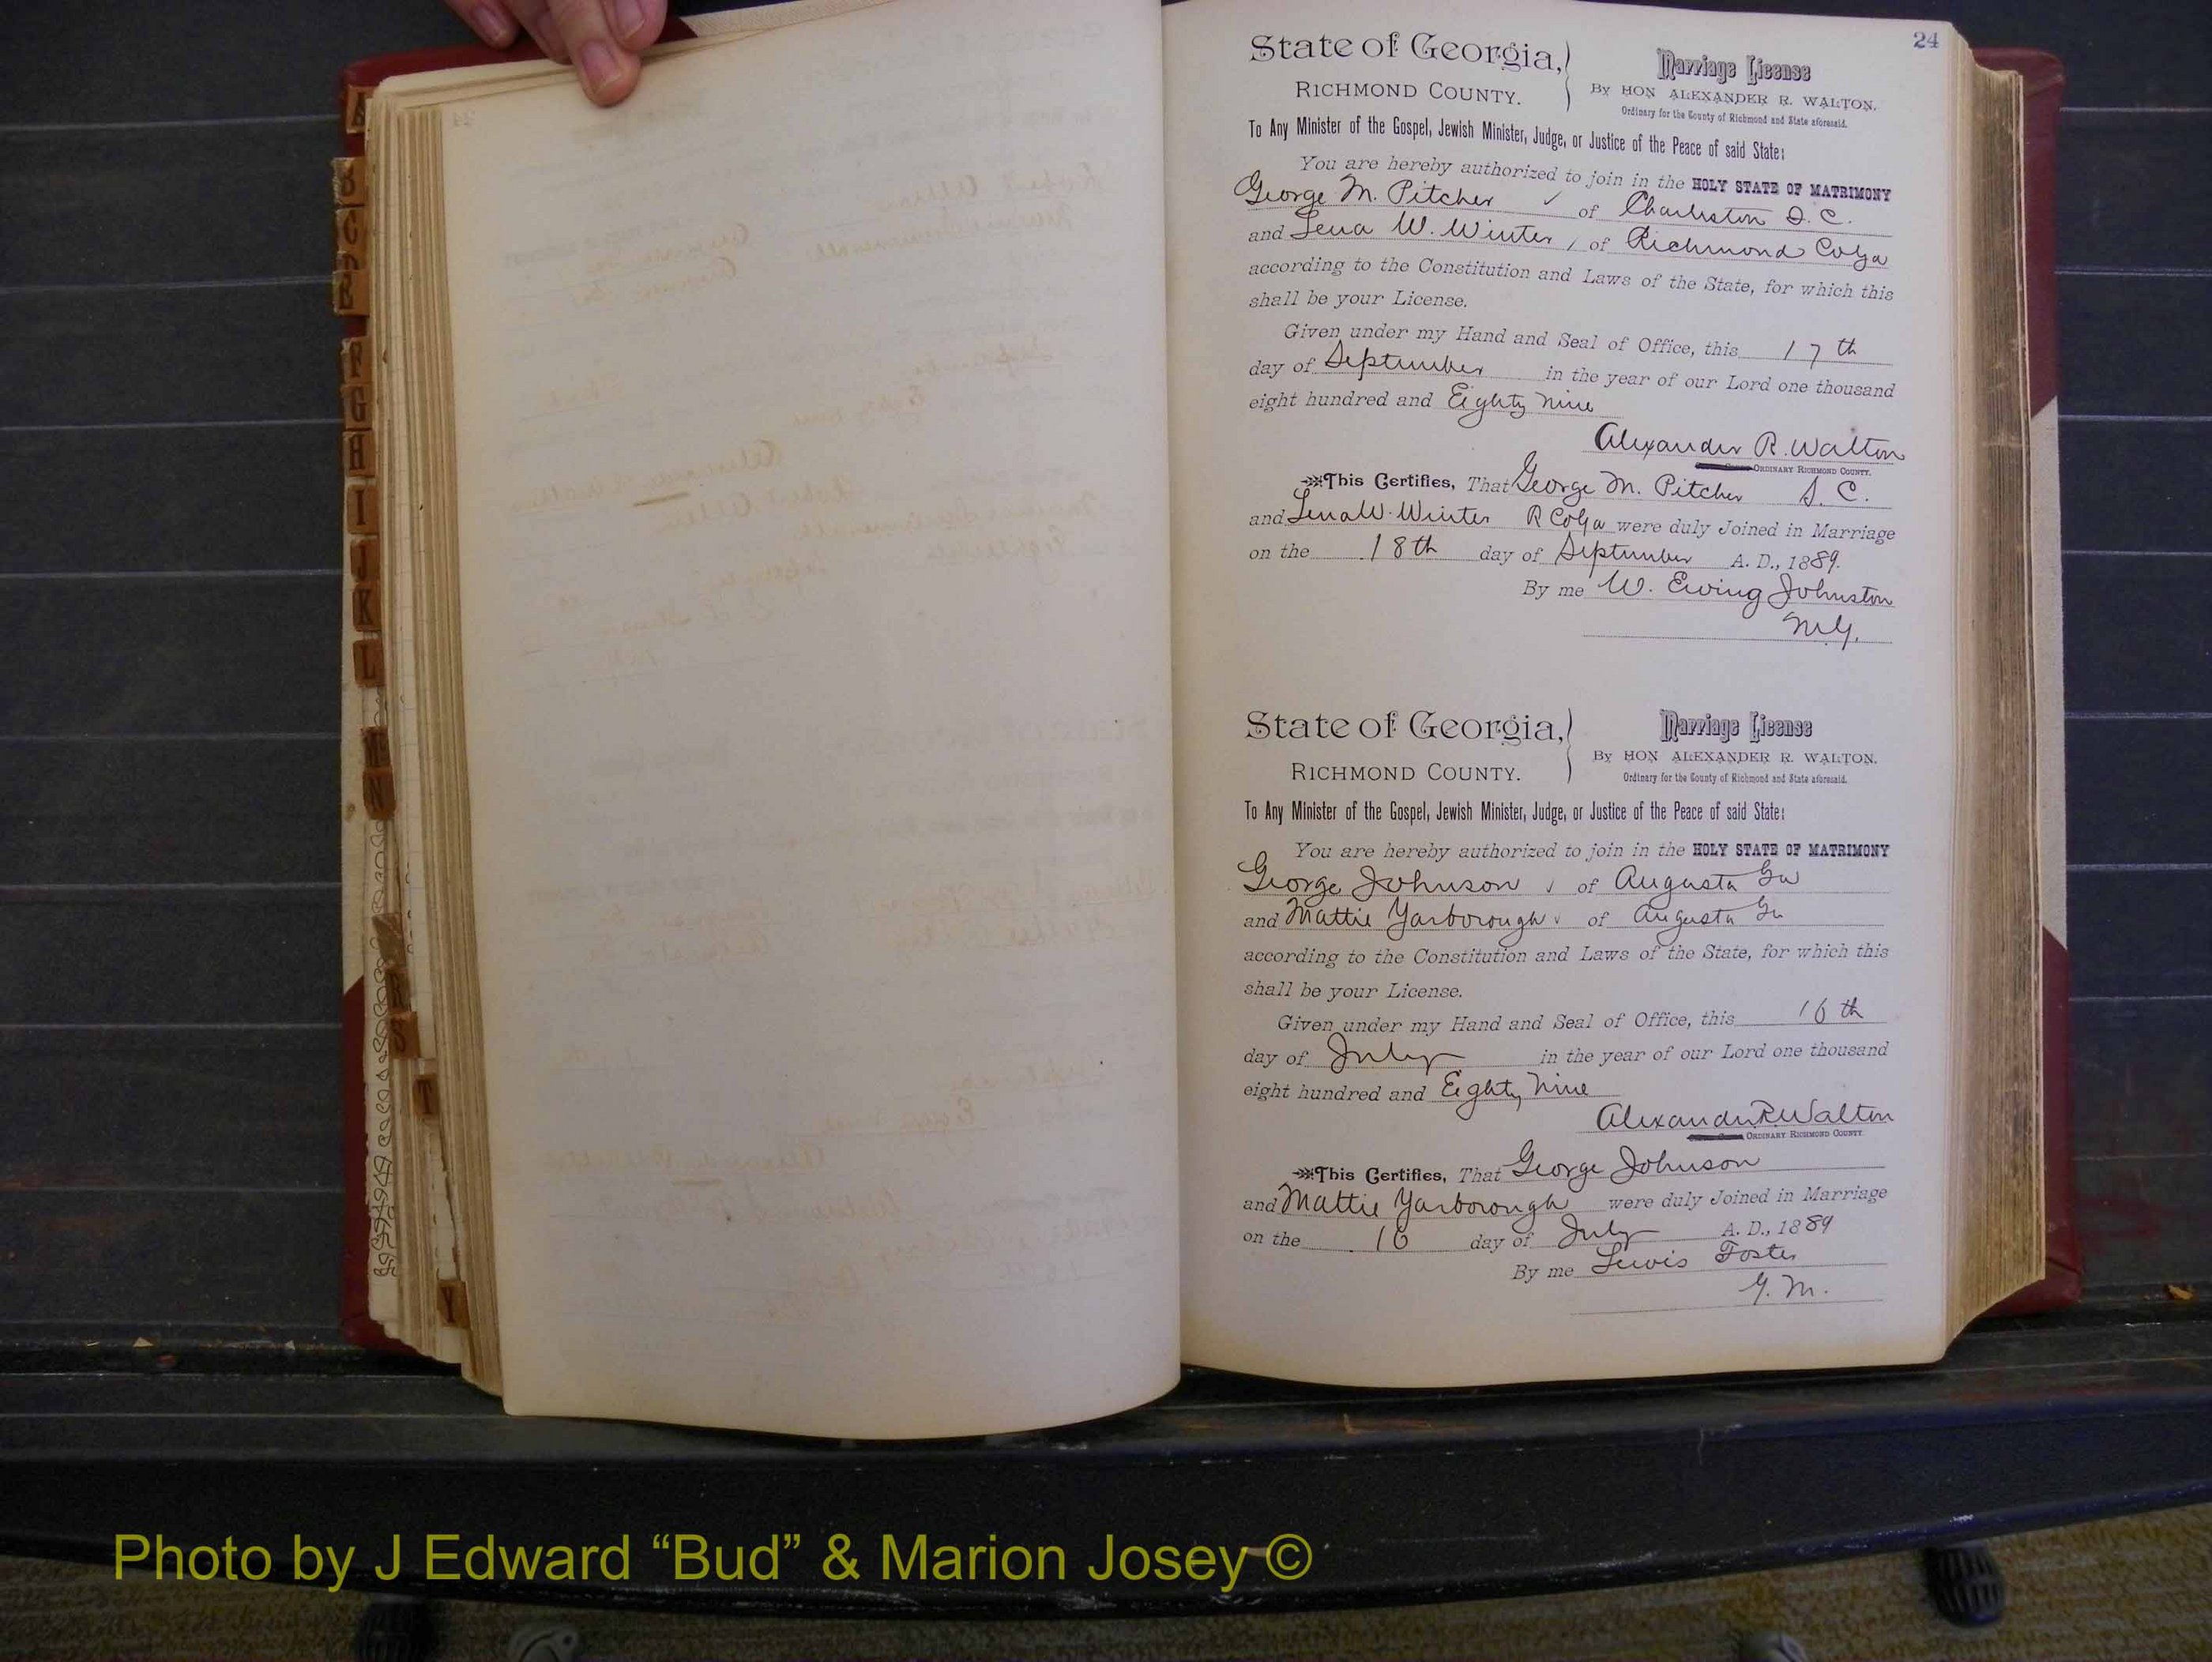 24
State of Georgia,
RICHMOND COUNTY.
Marriage License
By HON ALEXANDER R. WALTON,
Ordinary for the County of Richmond and State aforesaid.
To Any Minister of the Gospel, Jewish Minister, Judge, or Justice of the Peace of said State:
You are hereby authorized to join in the HOLY STATE OF MATRIMONY
George M. Pitcher of Charleston S. C.
and Lena W. Winter of Richmond Co Ga
according to the Constitution and Laws of the State, for which this
shall be your License.
Given under my Hand and Seal of Office, this 17th
day of September in the year of our Lord one thousand
eight hundred and Eighty Nine
Alexander R. Walton
ORDINARY RICHMOND COUNTY.
This Certifies, That George M. Pitcher S. C.
and Lena W. Winter R Co Ga were duly Joined in Marriage
on the 18th day of September A. D., 1889.
By me W. Ewing Johnston
M.G.
State of Georgia,
RICHMOND COUNTY.
Marriage License
By HON ALEXANDER R. WALTON.
Ordinary for the County of Richmond and State aforesaid.
To Any Minister of the Gospel, Jewish Minister, Judge, or Justice of the Peace of said State:
You are hereby authorized to join in the HOLY STATE OF MATRIMONY
George Johnson of Augusta Ga
and Mattie Yarborough of Augusta Ga
according to the Constitution and Laws of the State, for which this
shall be your License.
Given under my Hand and Seal of Office, this 16th
day of July in the year of our Lord one thousand
eight hundred and Eighty Nine
Alexander R Walton
ORDINARY RICHMOND COUNTY
This Certifies, That George Johnson
and Mattie Yarborough were duly Joined in Marriage
on the 16 day of July A. D., 1889
By me Lewis Foster
G. M.
B
C
E
F
G
H
I
J
K
L
N
R
S
T
Y
Photo by J Edward “Bud” & Marion Josey ©